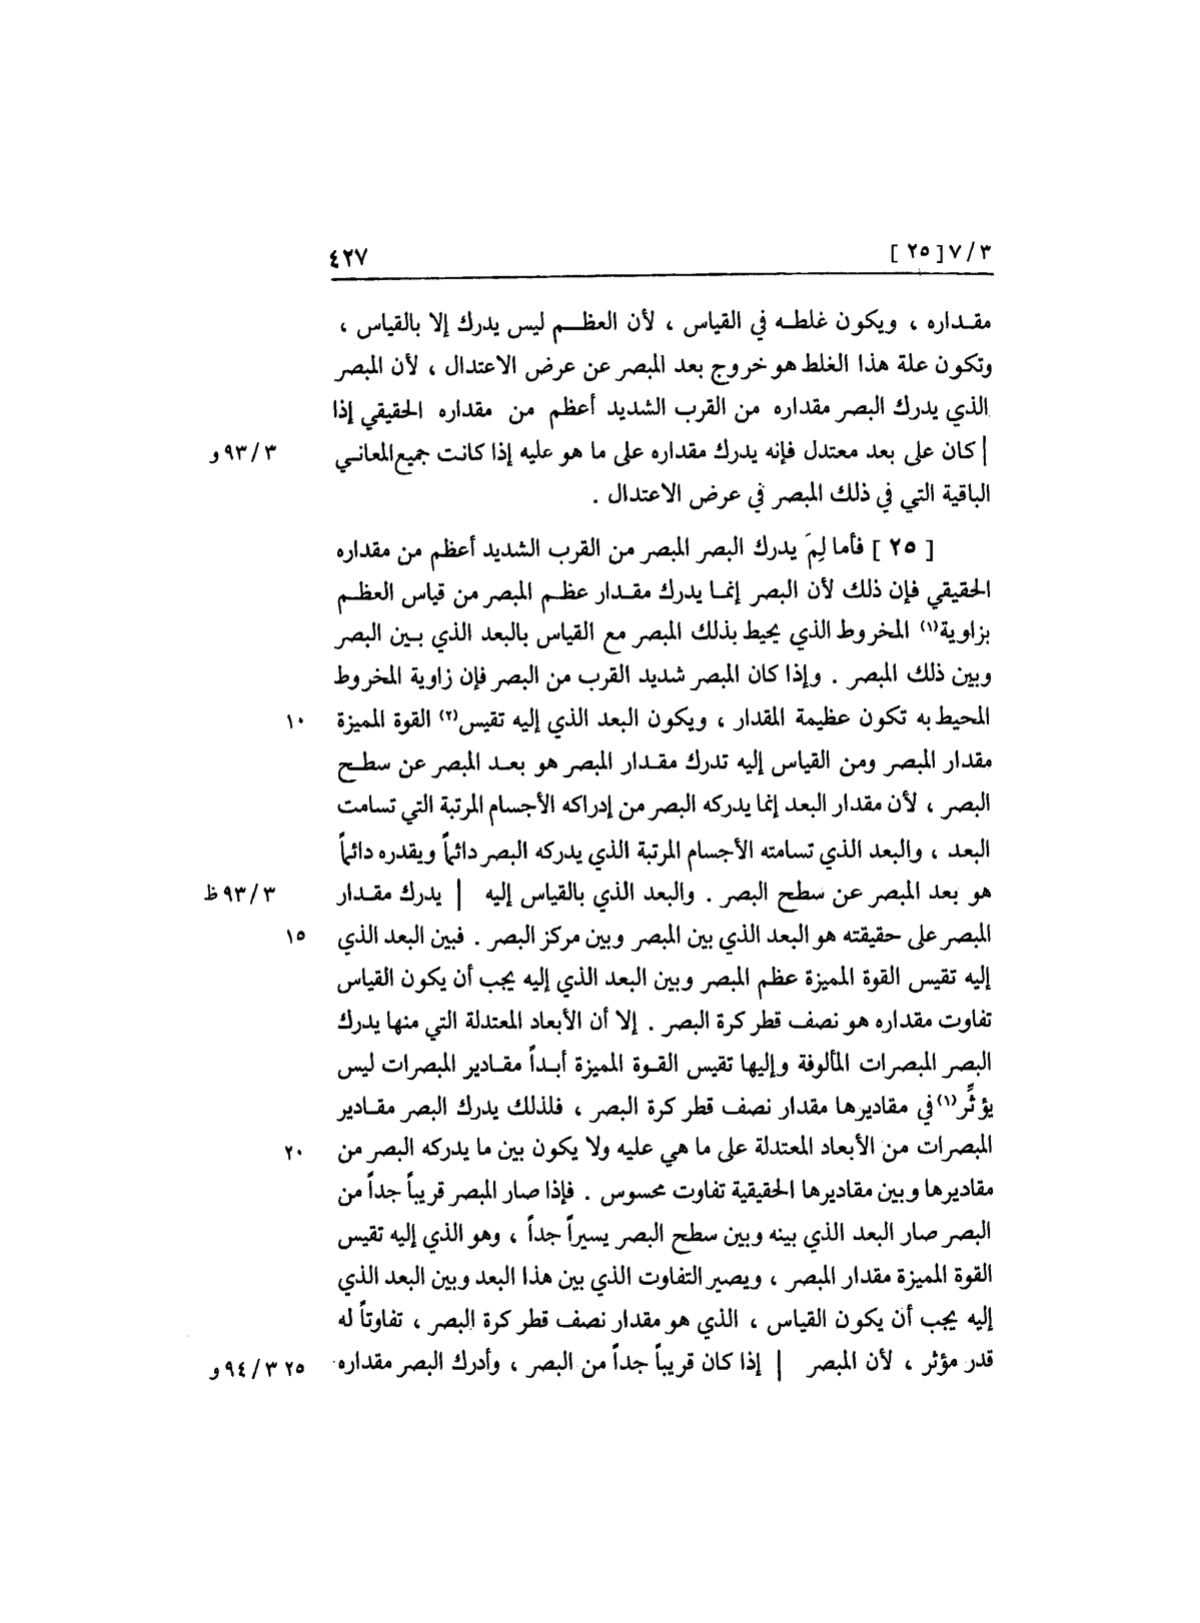 ٣ / ٧ [ ٢٥ ] ٤٢٧
مقـداره ، ويكون غلطـه في القياس ، لأن العظـم ليس يدرك إلا بالقياس ،
وتكون علة هذا الغلط هو خروج بعد المبصر عن عرض الاعتدال ، لأن المبصر
الذي يدرك البصر مقداره من القرب الشديد أعظم من مقداره الحقيقي إذا
| كان على بعد معتدل فإنه يدرك مقداره على ما هو عليه إذا كانت جميع المعاني ٣ / ٩٣ و
الباقية التي في ذلك المبصر في عرض الاعتدال .
[ ٢٥ ] فأما لِمَ يدرك البصر المبصر من القرب الشديد أعظم من مقداره
الحقيقي فإن ذلك لأن البصر إنمـا يدرك مقـدار عظـم المبصر من قياس العظـم
بزاوية(١) المخروط الذي يحيط بذلك المبصر مع القياس بالبعد الذي بـين البصر
وبين ذلك المبصر . وإذا كان المبصر شديد القرب من البصر فإن زاوية المخروط
المحيط به تكون عظيمة المقدار ، ويكون البعد الذي إليه تقيس(٢) القوة المميزة ١٠
مقدار المبصر ومن القياس إليه تدرك مقـدار المبصر هو بعـد المبصر عن سطـح
البصر ، لأن مقدار البعد إنما يدركه البصر من إدراكه الأجسام المرتبة التي تسامت
البعد ، والبعد الذي تسامته الأجسام المرتبة الذي يدركه البصر دائماً ويقدره دائماً
هو بعد المبصر عن سطح البصر . والبعد الذي بالقياس إليه | يدرك مقـدار ٣ / ٩٣ ظ
المبصر على حقيقته هو البعد الذي بين المبصر وبين مركز البصر . فبين البعد الذي ١٥
إليه تقيس القوة المميزة عظم المبصر وبين البعد الذي إليه يجب أن يكون القياس
تفاوت مقداره هو نصف قطر كرة البصر . إلا أن الأبعاد المعتدلة التي منها يدرك
البصر المبصرات المألوفة وإليها تقيس القـوة المميزة أبـداً مقـادير المبصرات ليس
يؤثِّر(١) في مقاديرها مقدار نصف قطر كرة البصر ، فلذلك يدرك البصر مقـادير
المبصرات من الأبعاد المعتدلة على ما هي عليه ولا يكون بين ما يدركه البصر من ٢٠
مقاديرها وبين مقاديرها الحقيقية تفاوت محسوس . فإذا صار المبصر قريباً جداً من
البصر صار البعد الذي بينه وبين سطح البصر يسيراً جداً ، وهو الذي إليه تقيس
القوة المميزة مقدار المبصر ، ويصير التفاوت الذي بين هذا البعد وبين البعد الذي
إليه يجب أن يكون القياس ، الذي هو مقدار نصف قطر كرة البصر ، تفاوتاً له
قدر مؤثر ، لأن المبصر | إذا كان قريباً جداً من البصر ، وأدرك البصر مقداره ٢٥ ٣ / ٩٤ و